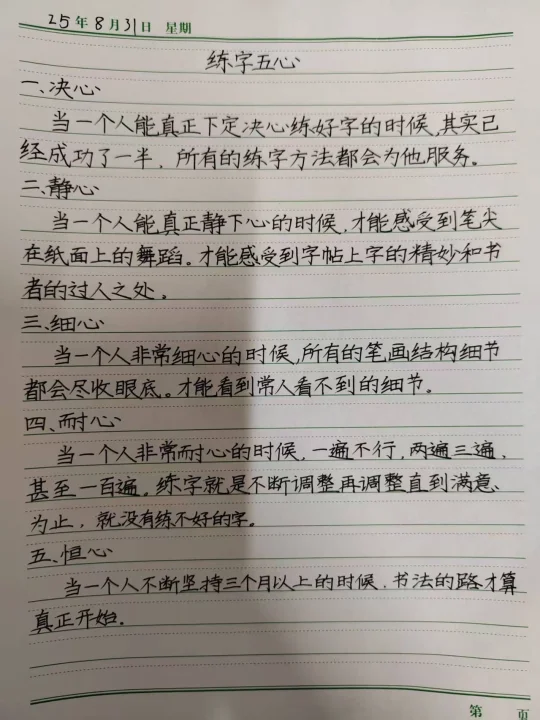 25年8月31日 星期
练字五心
一、决心
当一个人能真正下定决心练好字的时候,其实已
经成功了一半，所有的练字方法都会为他服务。
二、静心
当一个人能真正静下心的时候,才能感受到笔尖
在纸面上的舞蹈。才能感受到字帖上字的精妙和书
者的过人之处。
三、细心
当一个人非常细心的时候,所有的笔画结构细节
都会尽收眼底。才能看到常人看不到的细节。
四、耐心
当一个人非常耐心的时候，一遍不行,两遍三遍、
甚至一百遍。练字就是不断调整再调整直到满意、
为止，就没有练不好的字。
五、恒心
当一个人不断坚持三个月以上的时候，书法的路才算
真正开始。
第 页